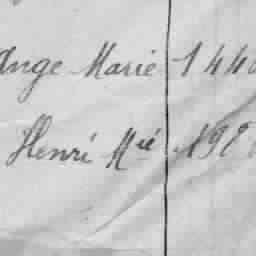 Ange Marie 144
Henri Mié 192